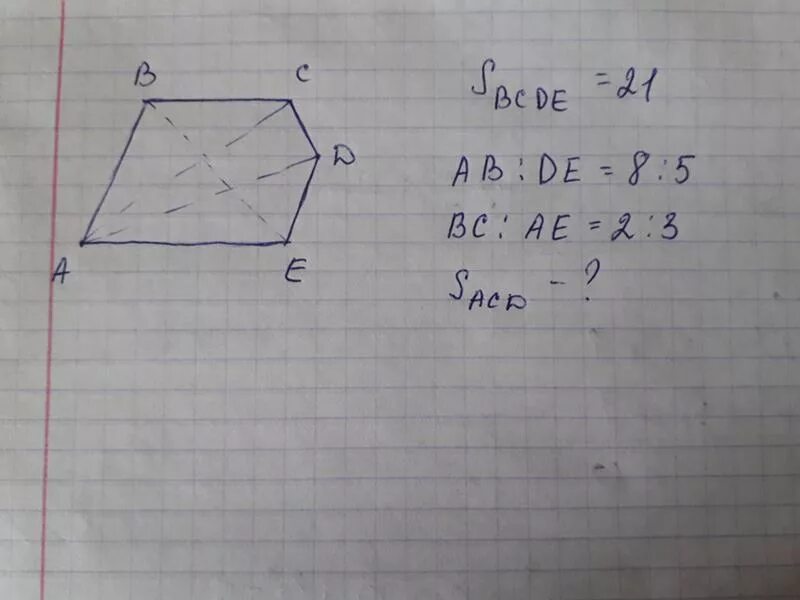 B C
S BCDE = 21
D
AB : DE = 8 : 5
BC : AE = 2 : 3
A E
S ACD - ?